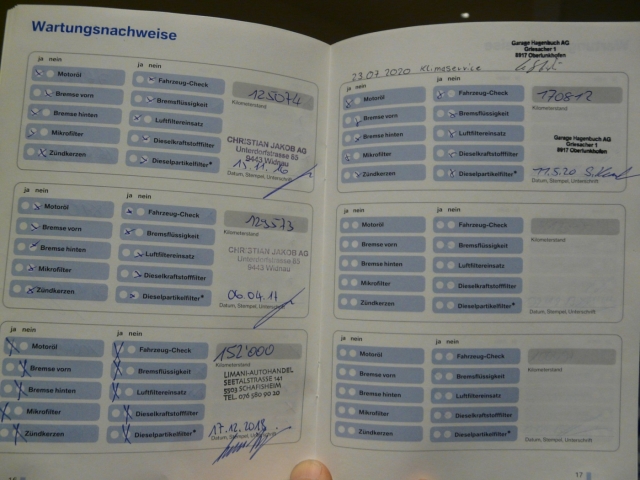 Wartungsnachweise
ja nein
ja nein
Motoröl
Fahrzeug-Check
Bremse vorn
Bremsflüssigkeit
Bremse hinten
Luftfiltereinsatz
Mikrofilter
Dieselkraftstofffilter
Zündkerzen
Dieselpartikelfilter*
125074
Kilometerstand
CHRISTIAN JAKOB AG
Unterdorfstrasse 85
9443 Widnau
Datum, Stempel, Unterschrift
ja nein
ja nein
Motoröl
Fahrzeug-Check
Bremse vorn
Bremsflüssigkeit
Bremse hinten
Luftfiltereinsatz
Mikrofilter
Dieselkraftstofffilter
Zündkerzen
Dieselpartikelfilter*
Kilometerstand
CHRISTIAN JAKOB AG
Unterdorfstrasse 85
9443 Widnau
Datum, Stempel, Unterschrift
ja nein
ja nein
Motoröl
Fahrzeug-Check
Bremse vorn
Bremsflüssigkeit
Bremse hinten
Luftfiltereinsatz
Mikrofilter
Dieselkraftstofffilter
Zündkerzen
Dieselpartikelfilter*
152'000
Kilometerstand
LIMANI-AUTOHANDEL
SEETALSTRASSE 141
5503 SCHAFISHEIM
TEL. 076 580 90 20
17.12.2018
Datum, Stempel, Unterschrift
Garage Hagenbuch AG
Griesacher 1
8917 Oberlunkhofen
23.07 2020 Klimaservice
ja nein
ja nein
Motoröl
Fahrzeug-Check
Bremse vorn
Bremsflüssigkeit
Bremse hinten
Luftfiltereinsatz
Mikrofilter
Dieselkraftstofffilter
Zündkerzen
Dieselpartikelfilter*
170812
Kilometerstand
Garage Hagenbuch AG
Griesacher 1
8917 Oberlunkhofen
11.5.20
Datum, Stempel, Unterschrift
ja nein
ja nein
Motoröl
Fahrzeug-Check
Bremse vorn
Bremsflüssigkeit
Bremse hinten
Luftfiltereinsatz
Mikrofilter
Dieselkraftstofffilter
Zündkerzen
Dieselpartikelfilter*
Kilometerstand
Datum, Stempel, Unterschrift
ja nein
ja nein
Motoröl
Fahrzeug-Check
Bremse vorn
Bremsflüssigkeit
Bremse hinten
Luftfiltereinsatz
Mikrofilter
Dieselkraftstofffilter
Zündkerzen
Dieselpartikelfilter*
Kilometerstand
Datum, Stempel, Unterschrift
16
17